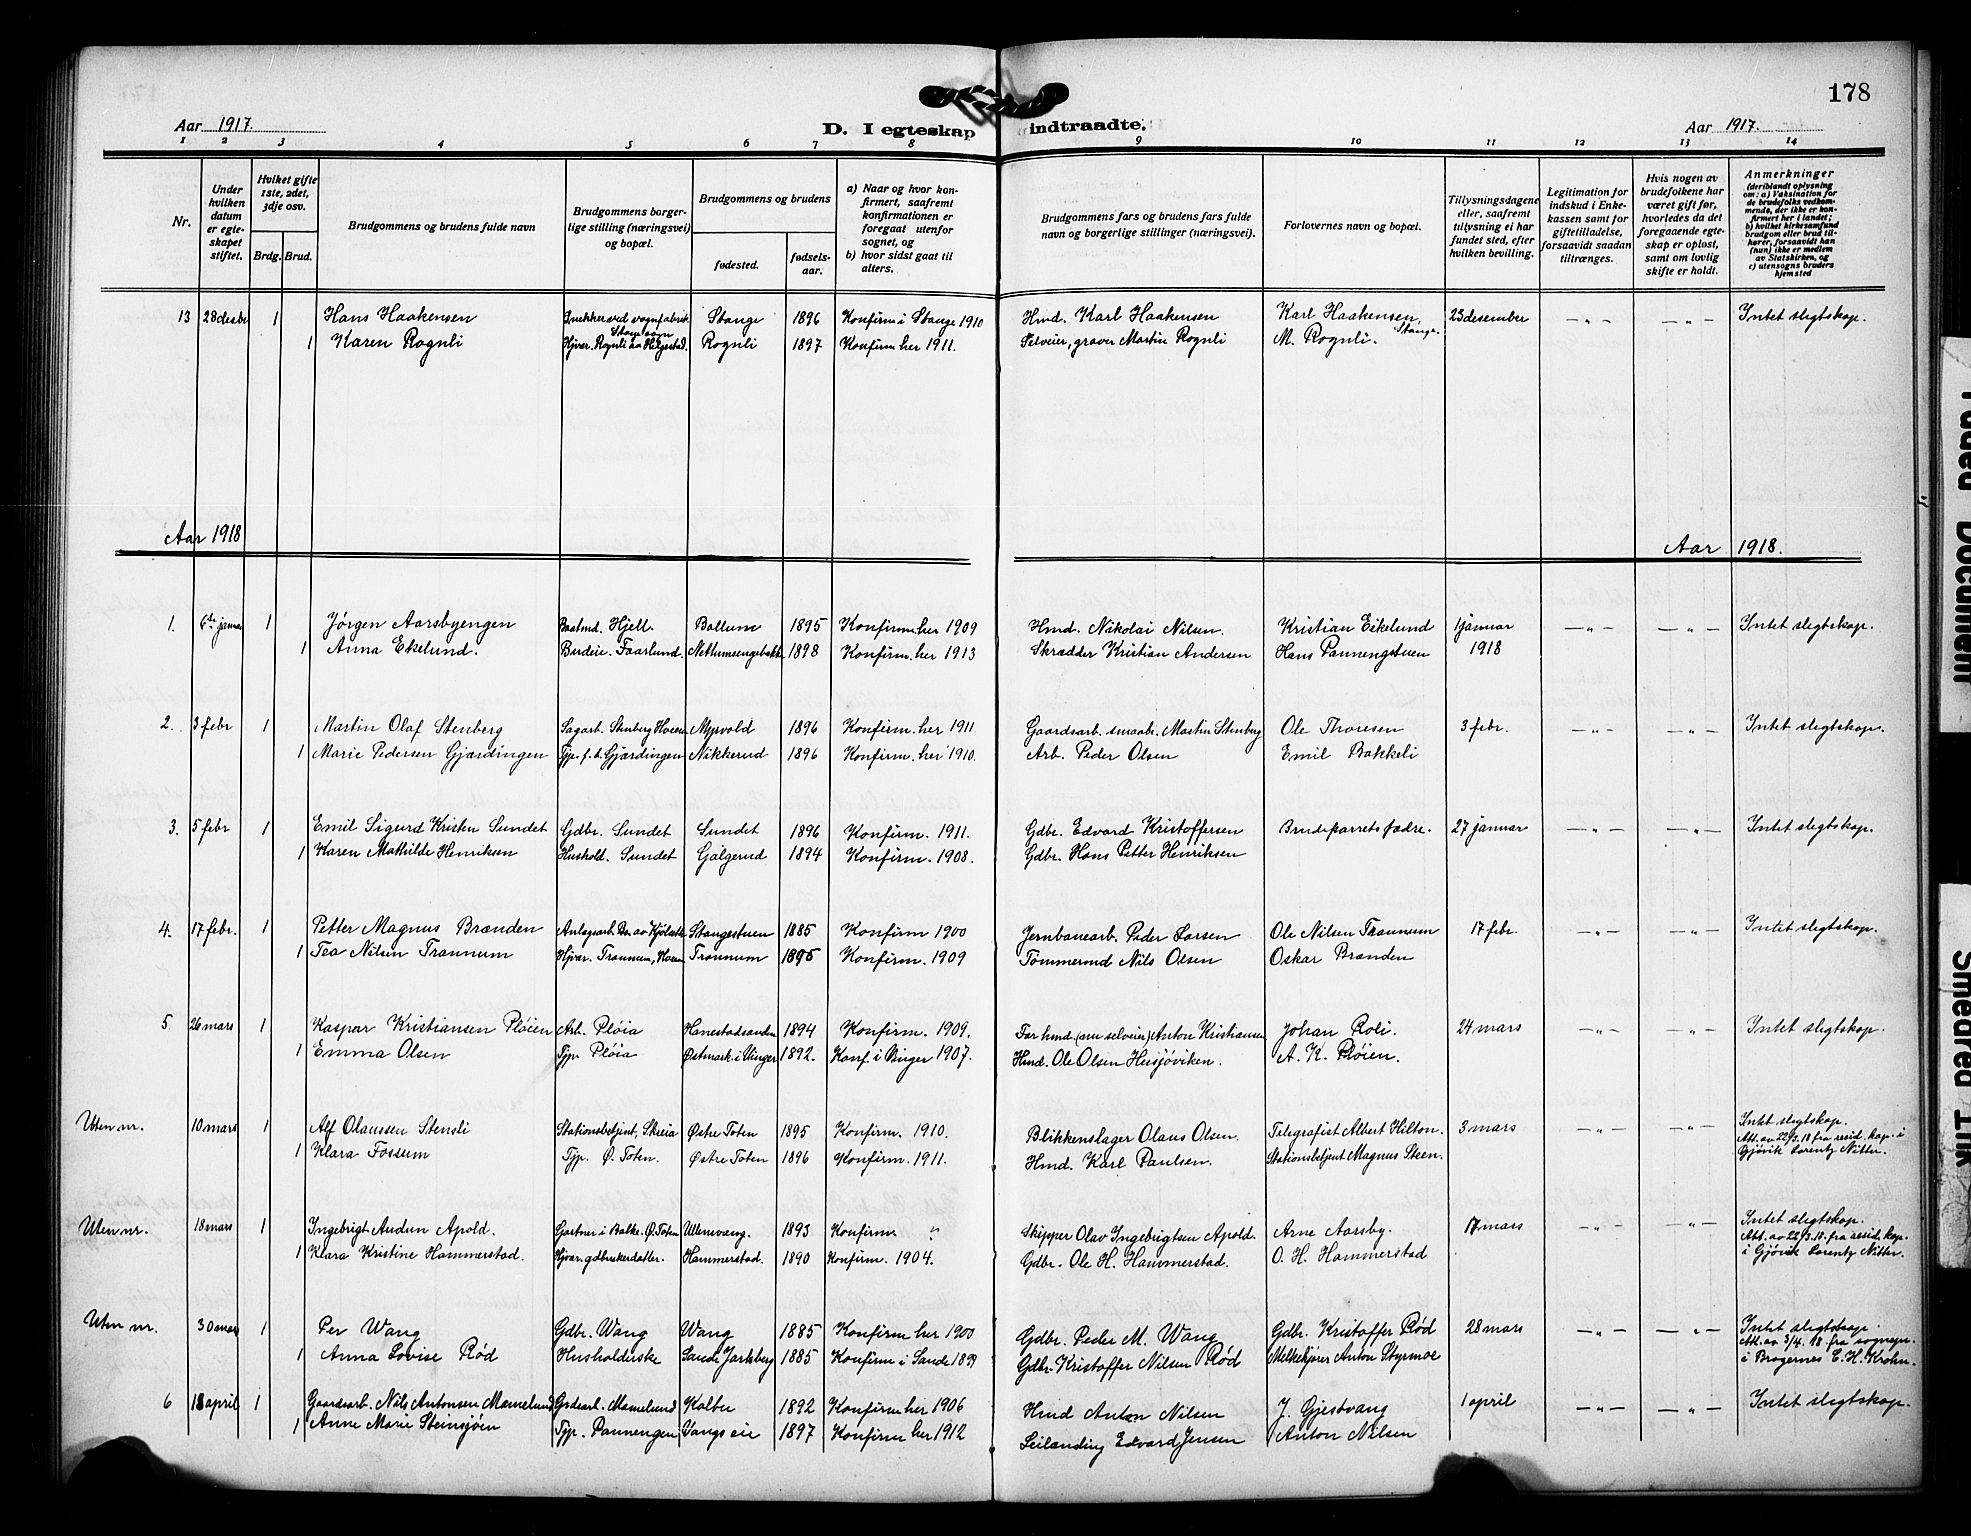 178
Aar 1917.
D. I egteskap indtraadte.
Aar 1917.
1 2 3 4 5 6 7 8 9 10 11 12 13 14
Nr.
Under hvilken datum er egteskapet stiftet.
Hviket gifte 1ste, 2det, 3dje osv.
Brdg. Brud.
Brudgommens og brudens fulde navn
Brudgommens borgerlige stilling (næringsvei) og bopæl.
Brudgommens og brudens
fødested.
fødselsaar.
a) Naar og hvor konfirmert, saafremt konfirmationen er foregaat utenfor sognet, og
b) hvor sidst gaat til alters.
Brudgommens fars og brudens fars fulde navn og borgerlige stillinger (næringsvei).
Forlovernes navn og bopæl.
Tillysningsdagene eller, saafremt tillysning ei har fundet sted, efter hvilken bevilling.
Legitimation for indskud i Enkekassen samt for giftetilladelse, forsaavidt saadan tiltrænges.
Hvis nogen av brudefolkene har været gift før, hvorledes da det foregaaende egteskap er opløst, samt om lovlig skifte er holdt.
Anmerkninger
(deriblandt oplysning om: a) Vaksination for de brudefolks vedkommende, der ikke er konfirmert her i landet; b) hvilket kirkesamfund brudgom eller brud tilhører, forsaavidt han (hun) ikke er medlem av Statskirken, og c) utensogns bruders hjemsted
13 28 desbr 1 Hans Haakensen Snekker ved vognfabrik Stange sogn Stange 1896 Konfirm i Stange 1910 Hmd. Karl Haakensen Karl Haakensen, Stange. 23 desember — „ — — „ — Intet slegtskap.
1 Karen Rognli Hjver. Rognli Rognli 1897 Konfirm her 1911. Selveier, graver Martin Rognli M. Rognli.
Aar 1918
Aar 1918.
1. 6te januar 1 Jørgen Aarsbyengen Baatmd. Hjell. Bollum 1895 Konfirm. her 1909 Hmd. Nikolai Nilsen. Kristian Eikelund 1 januar — „ — — „ — Intet slegtskap.
1 Anna Ekelund. Budeie. Faarlund. Netlumsengebakke 1898 Konfirm. her 1913 Skrædder Kristian Andersen Hans Pannengstuen 1918
2. 3 febr 1 Martin Olaf Stenberg Sagarb. Stenberg Myrvold 1896 Konfirm. her 1911 Gaardsarb. smaabr. Martin Stenberg Ole Thoresen 3 febr. — „ — — „ — Intet slegtskap.
1 Marie Pedersen Gjærdingen Tjp. f. b. Gjærdingen Nikkerud 1896 Konfirm. her 1910. Arb. Peder Olsen Emil Bakkeli
3. 5 febr 1 Emil Sigurd Kristen Sundet Gdbr. Sundet Sundet 1896 Konfirm. 1911. Gdbr. Edvard Kristoffersen Brudeparrets fædre. 27 januar — „ — — „ — Intet slegtskap.
1 Karen Mathilde Henriksen Hushold. Sundet Galgerud 1894 Konfirm. 1908. Gdbr. Hans Petter Henriksen
4. 17 febr. 1 Petter Magnus Brænden Anlagsarb. Stangestuen 1885 Konfirm 1900 Jernbanearb. Peder Larsen Ole Nilsen Traunum 17 febr. — „ — — „ — Intet slegtskap.
1 Tea Nilsen Traunum Hjver. Traunum, Traunum 1895 Konfirm. 1909 Tømmermd Nils Olsen Oskar Brænden
5. 26 mars 1 Kaspar Kristiansen Pløien Arb. Pløia Hanestadsanden 1894 Konfirm. 1909. Før hmd. (nu selveier) Anton Kristiansen Johan Roli. 24 mars — „ — — „ — Intet slegtskap.
1 Emma Olsen Tjp. Pløia Østmark. i Vinger 1892. Konf. i Vinger 1907. Hmd. Ole Olsen Husjøviken. A. K. Pløien.
Uten nr. 10 mars 1 Alf Olaussen Stensli Stationsbetjent, Skreia Østre Toten 1895 Konfirm. 1910. Blikkenslager Olaus Olsen. Telegrafist Albert Hilton. 3 mars — „ — — „ — Intet slegtskap.
1 Klara Fossum Tjp. Ø. Toten. Østre Toten 1896 Konfirm. 1911. Hmd. Karl Paulsen. Stationsbetjent Magnus Steen. Att. av 22/3. 18 fra resid. kap. i Gjøvik Lorentz Nitter.
Uten nr. 18 mars 1 Ingebrigt Audun Apold. Gartner i Balke. Ø. Toten Ullensvang. 1893 Konfirm. „ Skipper Olav Ingebrigtsen Apold. Arne Aarsby. 17 mars — „ — — „ — Intet slegtskap.
1 Klara Kristine Hammerstad. Hjvær. gdbrukerdatter. Hammerstad. 1890 Konfirm. 1904. Gdbr. Ole H. Hammerstad. O. H. Hammerstad Att. av 22/3. 18. fra resid. kap. i Gjøvik Lorentz Nitter.
Uten nr. 30 mars 1 Per Wang Gdbr. Wang Wang 1885 Konfirm her 1900 Gdbr. Peder M. Wang Gdbr. Kristoffer Rød 28 mars — „ — — „ — Intet slegtskap.
1 Anna Lovise Rød Husholderske Sande Jarlsberg 1885 Konfirm i Sande 1899 Gdbr Kristoffer Nilsen Rød Melkekjører Anton Styrmoe Att. av 3/4. 18 fra sognepr. i Bragernes C. H. Krohn.
6 18 april 1 Gaardsarb. Nils Antonsen Mamelund Grdsarb. Mamelund Kalber 1892 Konfirm her 1906 Hmd Anton Nilsen J. Gjestvang 1 april — „ — — „ — Intet slegtskap.
1 Anne Marie Steinsjøen Tjp. Pannengen Vangs eie 1897 Konfirm her 1912 Leilænding Edvard Jensen Anton Nilsen
Faded Document
Smeared Ink